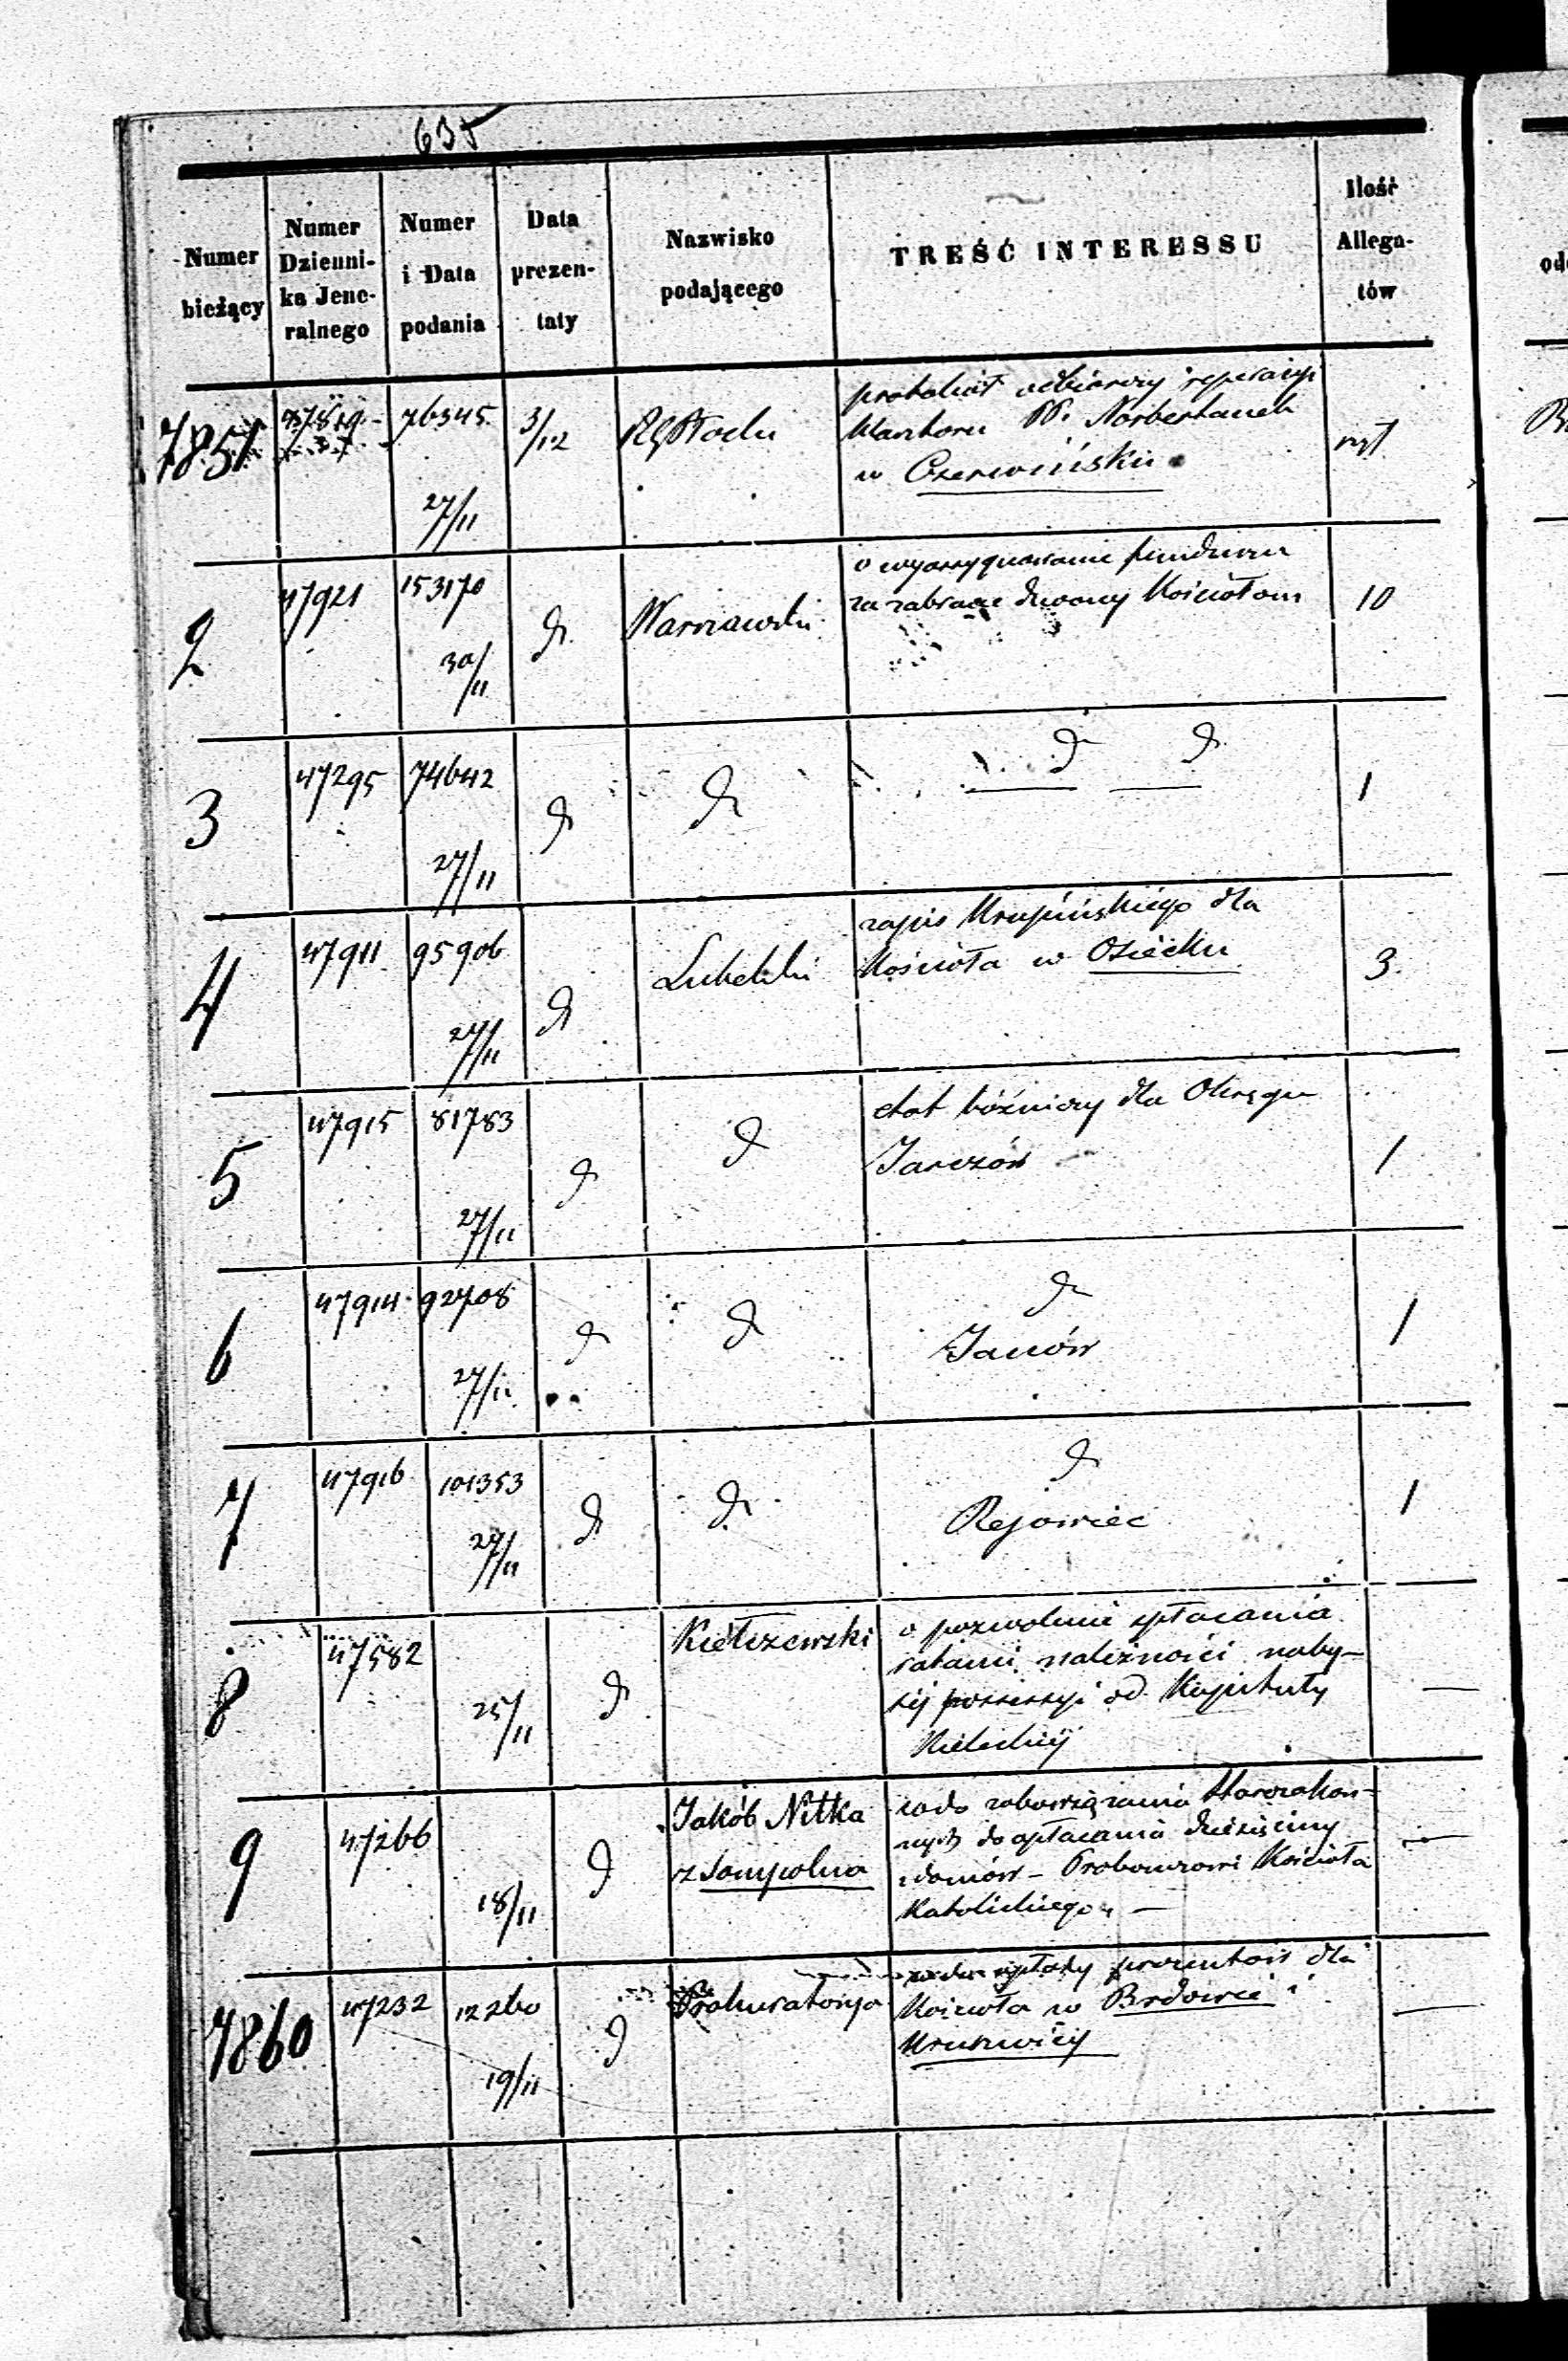 635
Numer
bieżący
Numer
Dzienni-
ka Jene-
ralnego
Numer
i Data
podania
Data
prezen-
taty
Nazwisko
podającego
TREŚĆ INTERESSU
Ilość
Allega-
tów
7851
76345
27/11
3/12
protokół odbiorczy reperacyi
Klasztoru PP. Norbertanek
w Czerwińsku
2
47921
153170
30/11
d
Warszawski
o wyassygnowanie funduszu
za zabrane dzwony Kościołom
10
3
47295
74642
27/11
d
d
d d
1
4
47911
95906
27/11
d
Lubelski
zapis Krupińskiego dla
Kościoła w Osiecku
3
5
47915
81783
27/11
d
d
etat bóźniczy dla Okręgu
Jarczów
1
6
47914
92708
27/11
d
d
d
Janów
1
7
47916
101353
27/11
d
d
d
Rejowiec
1
8
47582
25/11
d
Kiełszewski
o pozwolenie spłacania
ratami należności naby-
tej possessyi od Kapituły
Kieleckiej
—
9
47266
18/11
d
Jakób Nitka
z Sompolna
co do zobowiązania Starozakon-
nych do opłacania dziesięciny
z domów – Proboszczowi Kościoła
Katolickiego —
—
7860
47232
12260
19/11
d
Prokuratorya
wypłaty procentów dla
Kościoła w Brdowie i
Kruszwicy
—